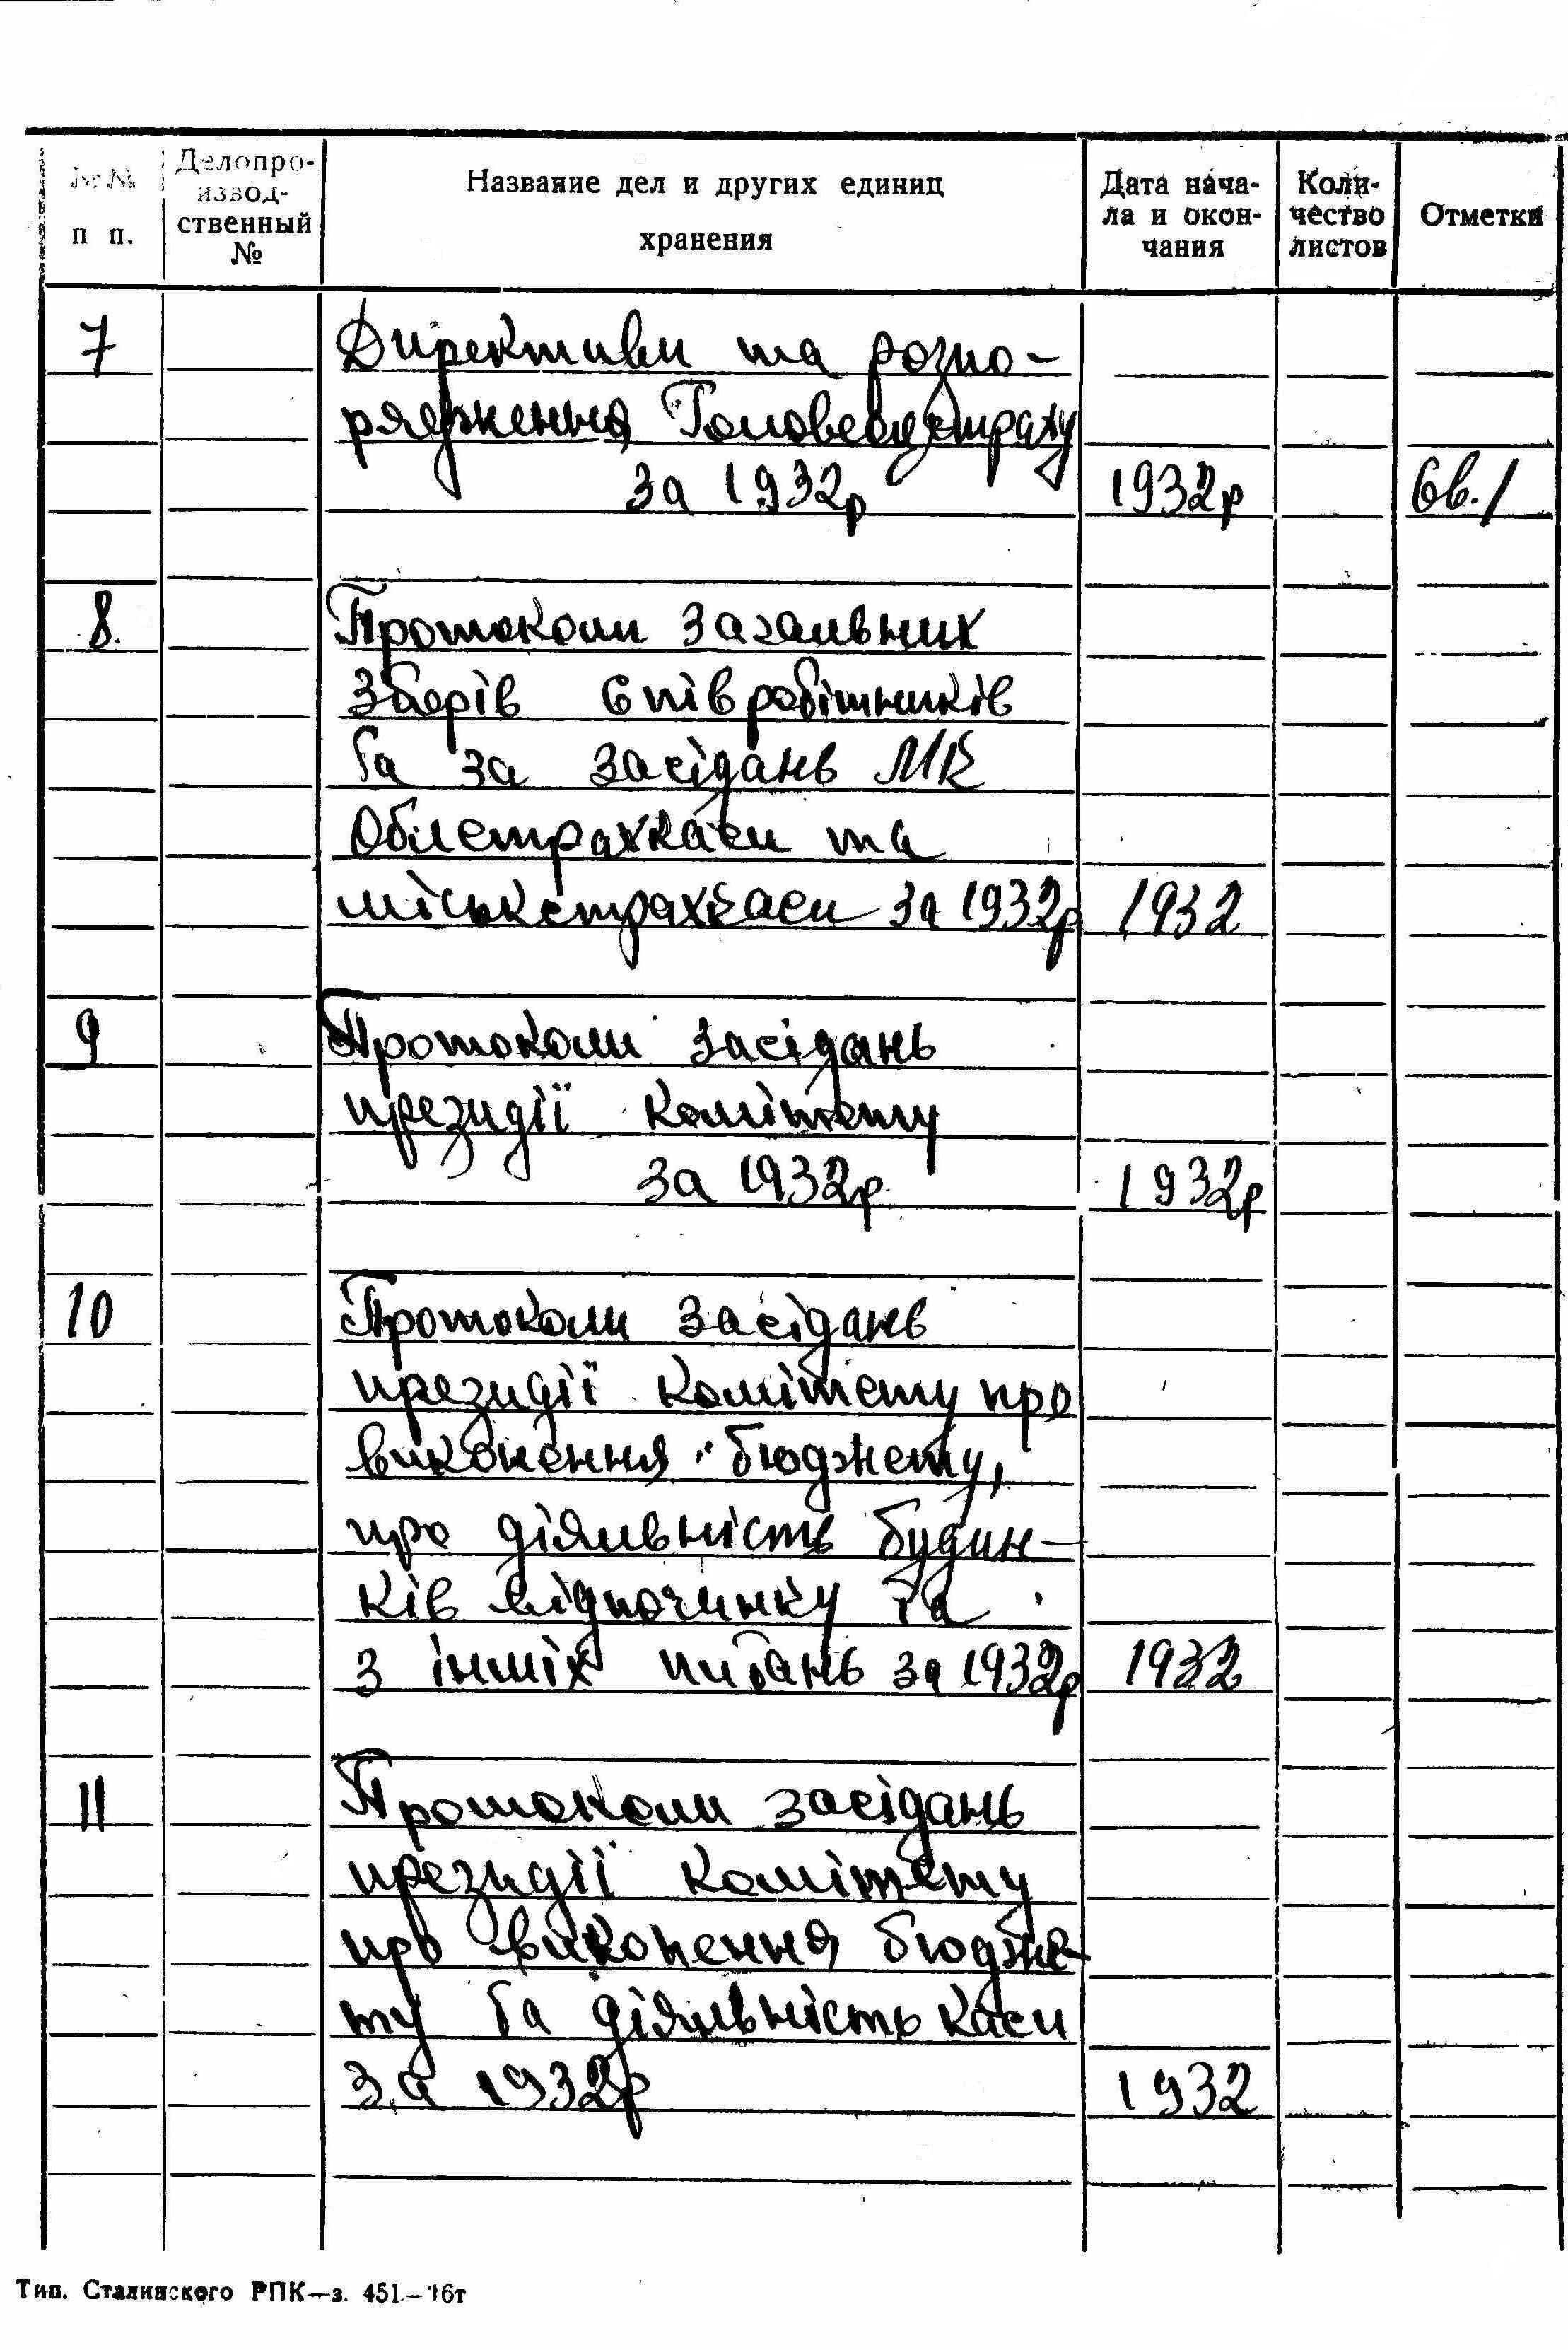 №№ п п.
Делопро-
извод-
ственный
№
Название дел и других единиц
хранения
Дата нача-
ла и окон-
чания
Коли-
чество
листов
Отметки
7 Директиви та розпо-
рядження Головсоцстраху
за 1932р 1932р св.1
8. Протоколи загальних
зборів співробітників
та за засідань МК
Облстрахкаси та
міськстрахкаси за 1932р 1932
9 Протоколи засідань
президії комітету
за 1932р 1932р
10 Протоколи засідань
президії комітету про
виконення бюджету,
про діяльність будин-
ків відпочинку та
з інших питань за 1932р 1932
11 Протоколи засідань
президії комітету
про виконення бюдже-
ту та діяльність каси
за 1932р 1932
Тип. Сталинского РПК—з. 451—16т